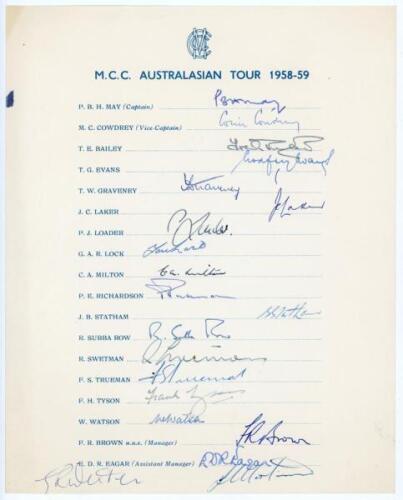 MCC
M.C.C. AUSTRALASIAN TOUR 1958-59
P. B. H. MAY (Captain) PBHMay
M. C. COWDREY (Vice-Captain) Colin Cowdrey
T. E. BAILEY Trevor Bailey
T. G. EVANS Godfrey Evans
T. W. GRAVENEY TWGraveney
J. C. LAKER JCLaker
P. J. LOADER P Loader.
G. A. R. LOCK Tony Lock
C. A. MILTON Ca. Milton
P. E. RICHARDSON
J. B. STATHAM JBStatham
R. SUBBA ROW R. Subba Row
R. SWETMAN R Swetman
F. S. TRUEMAN F S Trueman
F. H. TYSON Frank Tyson
W. WATSON W Watson
F. R. BROWN M.B.E. (Manager) F R Brown
E. D. R. EAGAR (Assistant Manager) E.D.R.Eagar